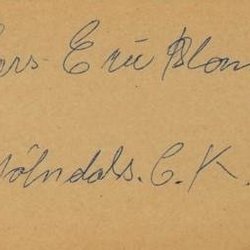 Lars Eric Blom
Mölndals. C. K.